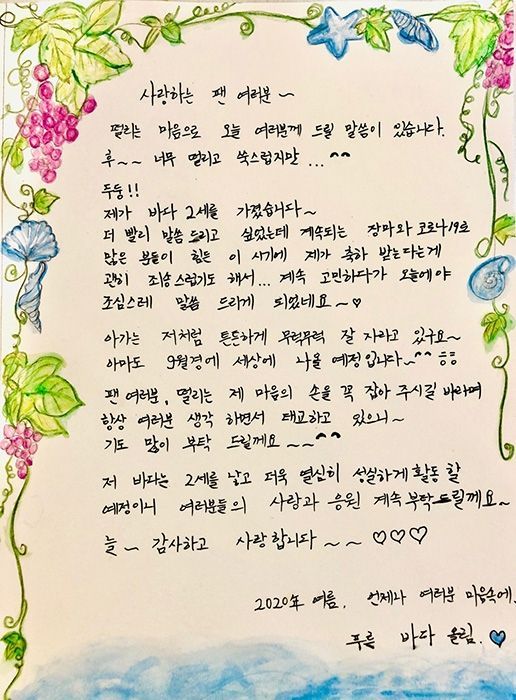 사랑하는 팬 여러분~
떨리는 마음으로 오늘 여러분께 드릴 말씀이 있습니다.
후~~ 너무 떨리고 쑥스럽지만...^^
두둥!!
제가 바다 2세를 가졌습니다~
더 빨리 말씀 드리고 싶었는데 계속되는 장마와 코로나19로
많은 분들이 힘든 이 시기에 제가 축하 받는다는게
괜히 죄송스럽기도 해서... 계속 고민하다가 오늘에야
조심스레 말씀 드리게 되었네요~♡
아가는 저처럼 튼튼하게 무럭무럭 잘 자라고 있구요~
아마도 9월경에 세상에 나올 예정입니다~^^ ㅎㅎ
팬 여러분, 떨리는 제 마음의 손을 꼭 잡아 주시길 바라며
항상 여러분 생각 하면서 태교하고 있으니~
기도 많이 부탁 드릴께요~~^^
저 바다는 2세를 낳고 더욱 열심히 성실하게 활동 할
예정이니 여러분들의 사랑과 응원 계속 부탁드릴께요~
늘~ 감사하고 사랑합니다~~♡♡♡
2020年 여름, 언제나 여러분 마음속에.
푸른 바다 올림.♥